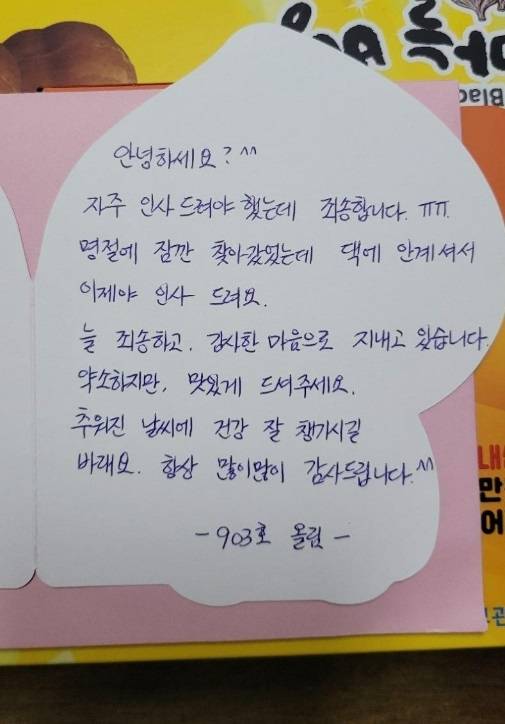 안녕하세요? ^^
자주 인사드려야 했는데 죄송합니다. ㅠㅠ.
명절에 잠깐 찾아갔었는데 댁에 안계셔서
이제야 인사 드려요.
늘 죄송하고. 감사한 마음으로 지내고 있습니다.
약소하지만, 맛있게 드셔주세요.
추워진 날씨에 건강 잘 챙기시길
바래요. 항상 많이많이 감사드립니다.^^
- 903호 올림 -
내
만
어